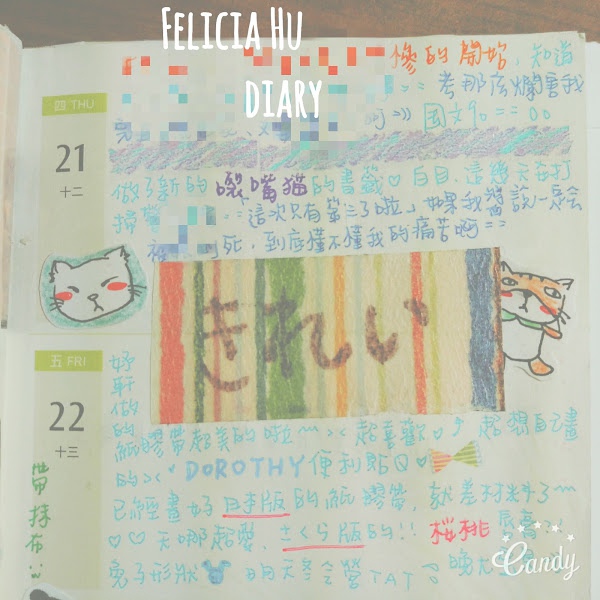 FELICIA HU
DIARY
慘的開始，知道
考那麼爛害我
四 THU
國文90 == 00
21
十二
做了新的噘嘴猫的書籤♡白目，這幾天在打
掃 == 「這次只有第三了啦」如果我說一定會
死，到底懂不懂我的痛苦啊 ==
きれい
五 FRI
22
十三
妤軒做的紙膠帶超美的啦～ >< 超喜歡♡ 超想自己畫
的 >< DOROTHY便利貼Q♡
已經畫好日本版的紙膠帶，就差材料了～
♡♡天哪超愛，さくら版的!! 桜桃
兔子形狀 明天冬令營TAT
帶抹布::
Candy